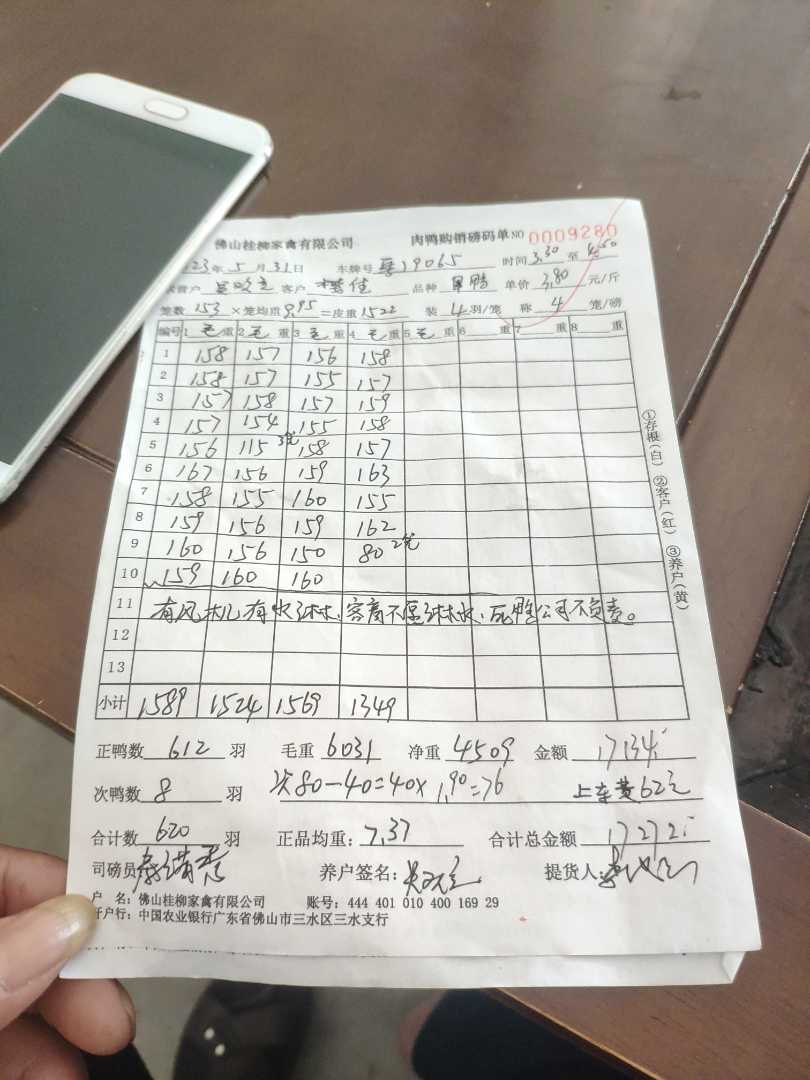 佛山桂柳家禽有限公司 肉鸭购销磅码单 NO 0009280
23年5月31日 车牌号 19065 时间 3.30 至
客户 品种 鸭 单价 3.80 元/斤
笼数 153 ×笼均重 9.95 =皮重 1522 装 4 羽/笼 称 4 笼/磅
编号 1 毛 重 2 毛 重 3 毛 重 4 毛 重 5 毛 重 6 重 7 重 8 重
1 158 157 156 158
2 158 157 155 157
3 157 158 157 159
4 157 154 155 158
5 156 115 3笼 158 157
6 167 156 159 163
7 158 155 160 155
8 159 156 159 162
9 160 156 150 80 2笼
10 159 160 160
11 有风机有水淋,客商不愿淋水,死鸭公司不负责。
12
13
小计 1589 1524 1569 1349
正鸭数 612 羽 毛重 6031 净重 4509 金额 17134
次鸭数 8 羽 次80-40=40×1.90=76 上车费62元
合计数 620 羽 正品均重: 7.37 合计总金额 17272
司磅员 养户签名: 提货人:
户 名: 佛山桂柳家禽有限公司 账号: 444 401 010 400 169 29
开户行: 中国农业银行广东省佛山市三水区三水支行
①存根(白) ②客户(红) ③养户(黄)